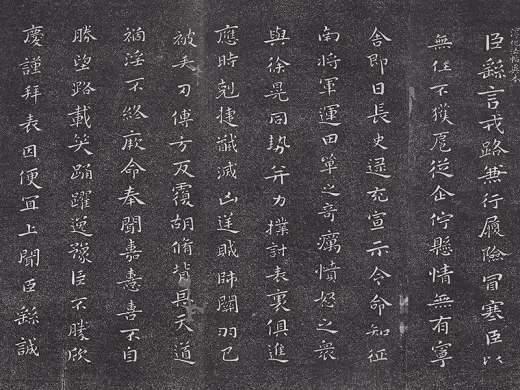 臣繇言戎路兼行履險冒寒臣以
無任不獲扈從企佇懸情無有寧
舍即日長史逯充宣示令命知征
南將軍運田單之奇厲憤怒之衆
與徐晃同勢并力撲討表裏俱進
應時剋捷馘滅凶逆賊帥關羽已
被矢刃傅方反覆胡脩背恩天道
禍淫不終厥命奉聞嘉憙喜不自
勝望路載笑踊躍逸豫臣不勝欣
慶謹拜表因便宜上聞臣繇誠